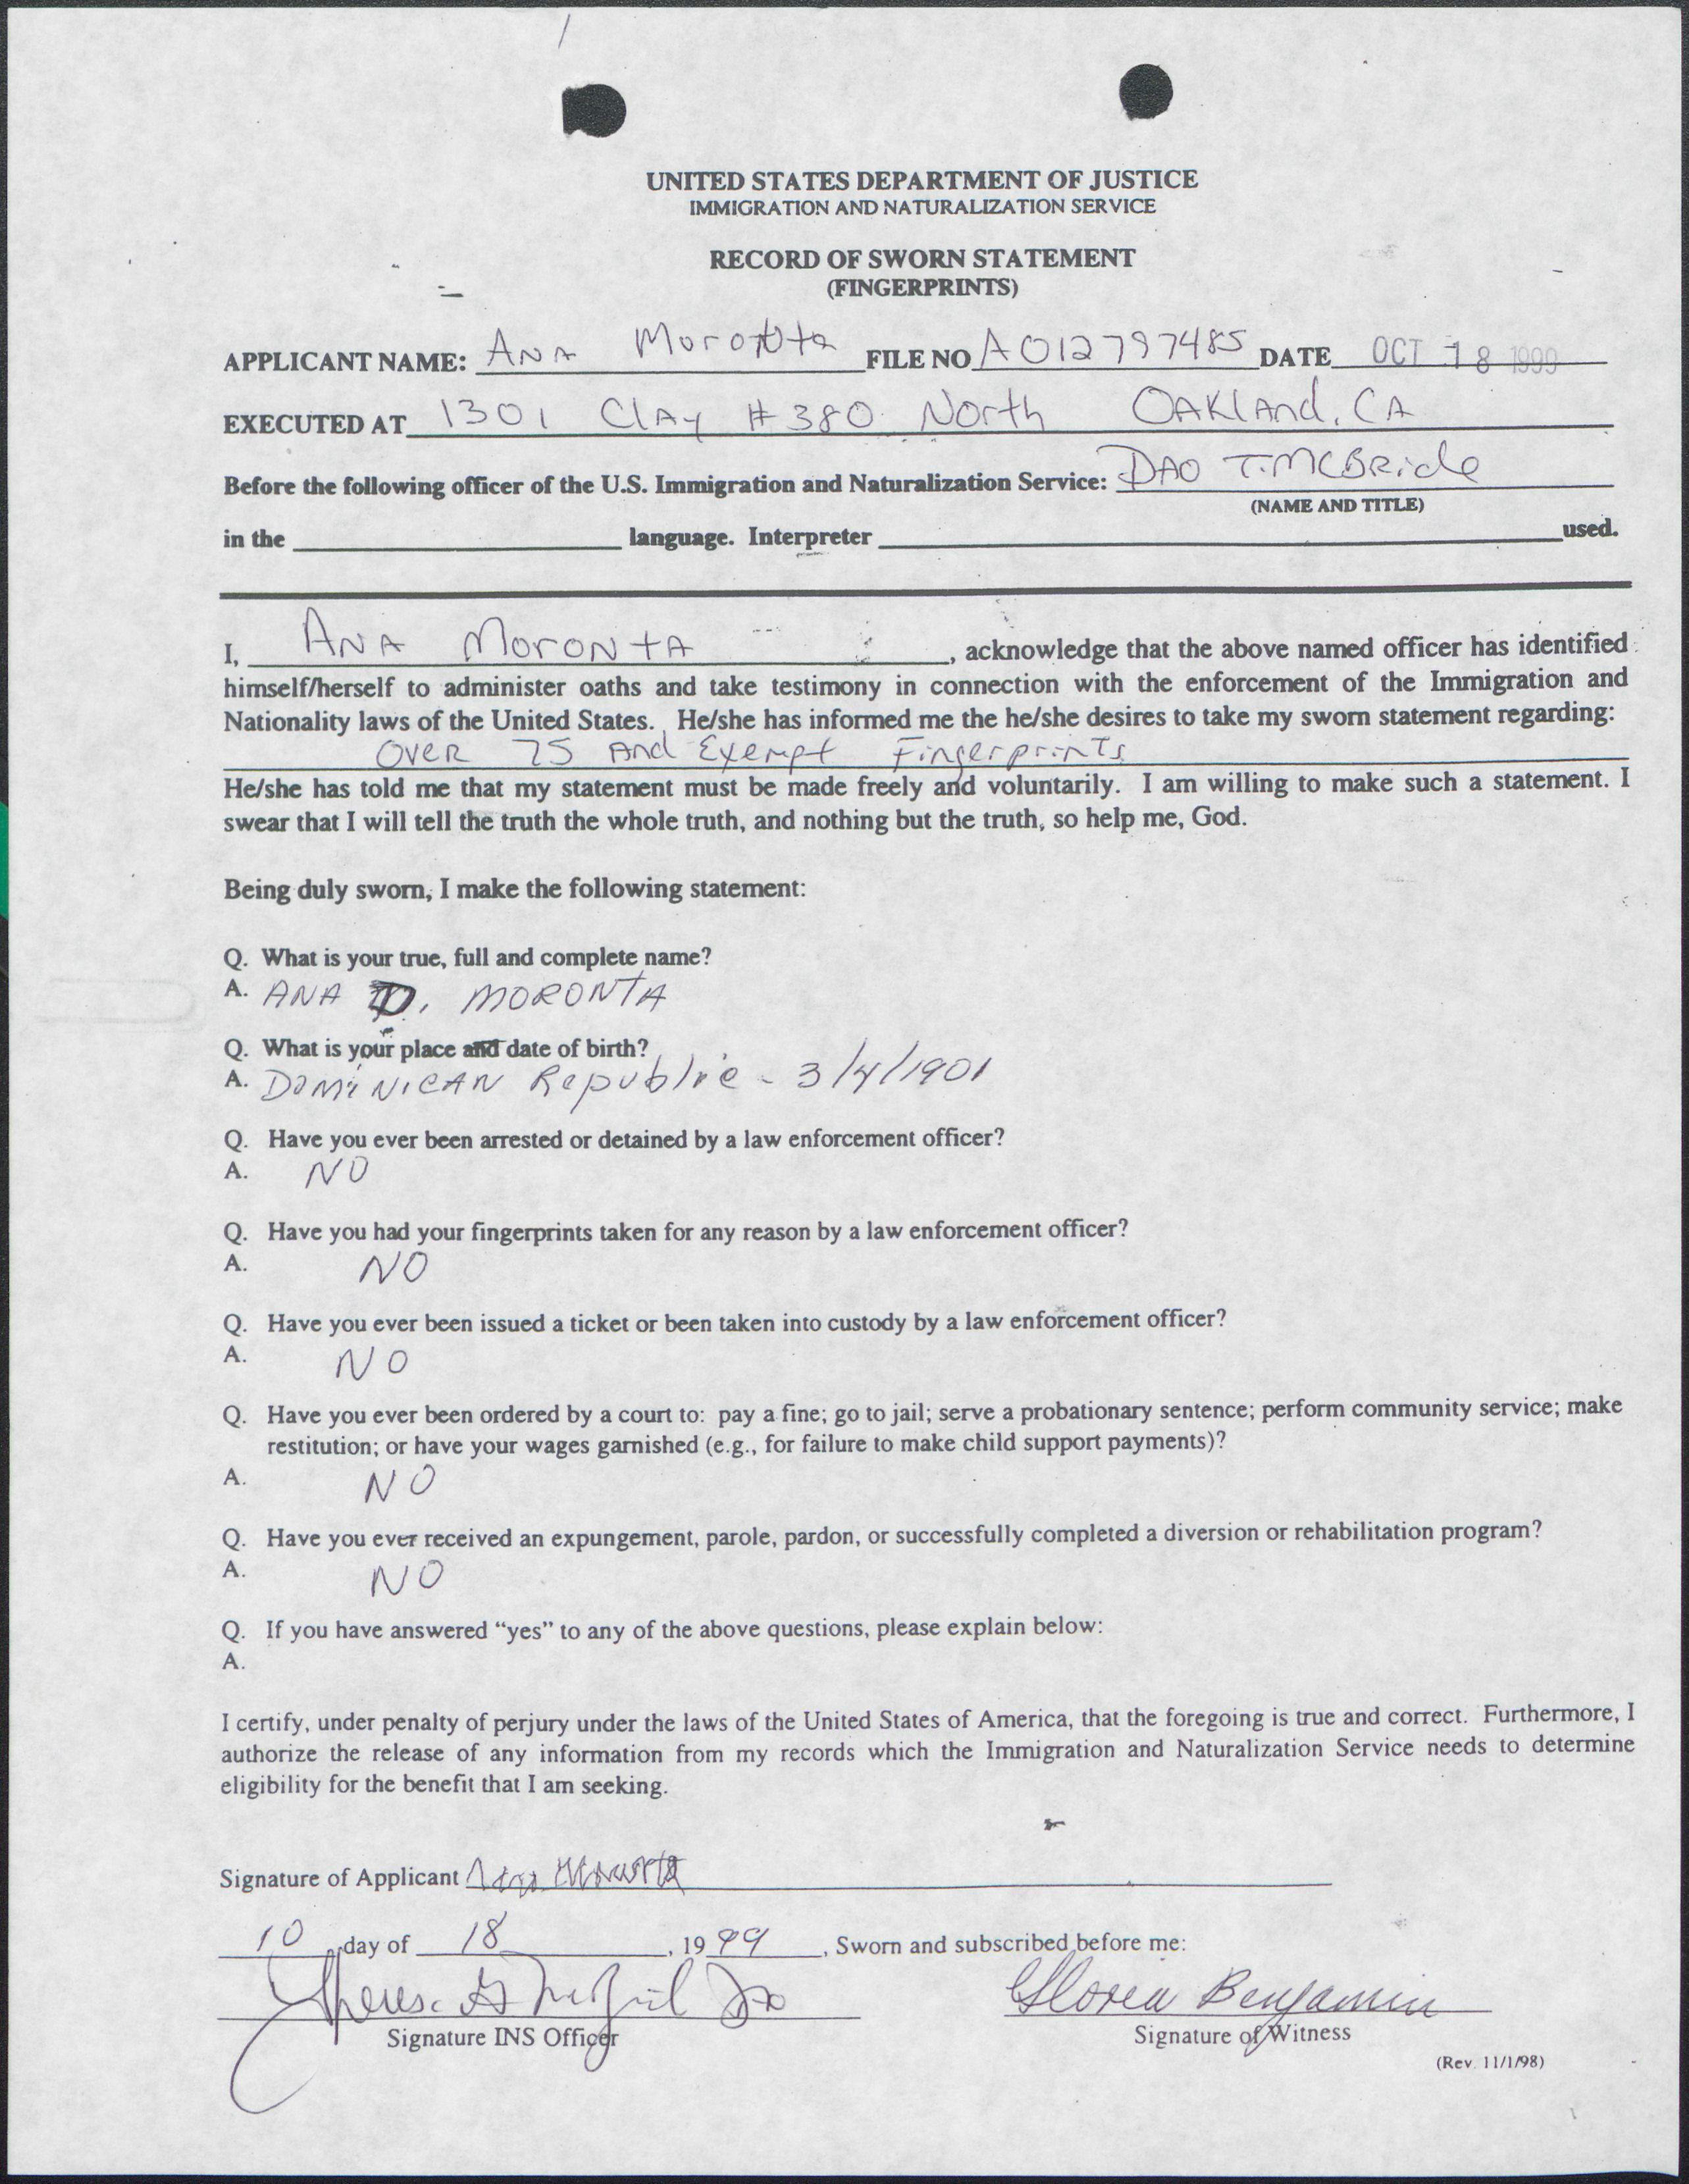 UNITED STATES DEPARTMENT OF JUSTICE
IMMIGRATION AND NATURALIZATION SERVICE
RECORD OF SWORN STATEMENT
(FINGERPRINTS)
APPLICANT NAME: ANA Moronta FILE NO A012797485 DATE OCT 18 1999
EXECUTED AT 1301 Clay #380 North OAKland, CA
Before the following officer of the U.S. Immigration and Naturalization Service: DAO T. McBRide
(NAME AND TITLE)
in the language. Interpreter used.
I, ANA MoroNtA, acknowledge that the above named officer has identified
himself/herself to administer oaths and take testimony in connection with the enforcement of the Immigration and
Nationality laws of the United States. He/she has informed me the he/she desires to take my sworn statement regarding:
OVER 75 And Exempt Fingerprints
He/she has told me that my statement must be made freely and voluntarily. I am willing to make such a statement. I
swear that I will tell the truth the whole truth, and nothing but the truth, so help me, God.
Being duly sworn, I make the following statement:
Q. What is your true, full and complete name?
A. ANA D. MORONTA
Q. What is your place and date of birth?
A. DOMiNICAN Republic - 3/4/1901
Q. Have you ever been arrested or detained by a law enforcement officer?
A. NO
Q. Have you had your fingerprints taken for any reason by a law enforcement officer?
A. NO
Q. Have you ever been issued a ticket or been taken into custody by a law enforcement officer?
A. NO
Q. Have you ever been ordered by a court to: pay a fine; go to jail; serve a probationary sentence; perform community service; make
restitution; or have your wages garnished (e.g., for failure to make child support payments)?
A. NO
Q. Have you ever received an expungement, parole, pardon, or successfully completed a diversion or rehabilitation program?
A. NO
Q. If you have answered "yes" to any of the above questions, please explain below:
A.
I certify, under penalty of perjury under the laws of the United States of America, that the foregoing is true and correct. Furthermore, I
authorize the release of any information from my records which the Immigration and Naturalization Service needs to determine
eligibility for the benefit that I am seeking.
Signature of Applicant
10 day of 18, 1999, Sworn and subscribed before me:
Gloria Benjamin
Signature INS Officer Signature of Witness
(Rev. 11/1/98)